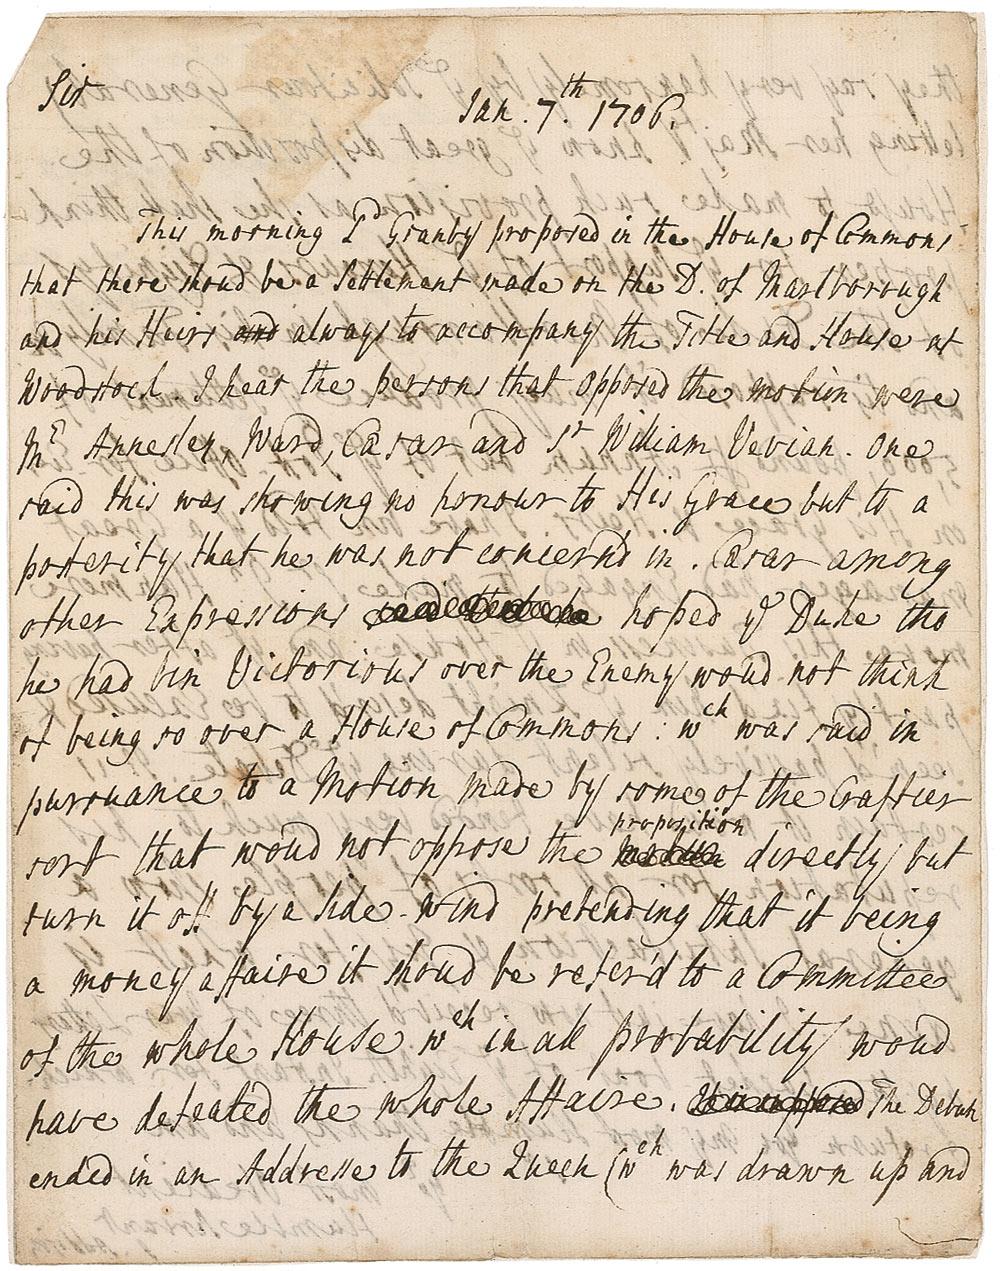 Sir
Jan. 7.th 1706.
This morning Ld Granby proposed in the House of Commons
that there shoud be a Settlement made on the D. of Marlborough
and his Heirs and always to accompany the Title and House at
Woodstock. I hear the persons that opposed the motion were
Mr Annesley, Ward, Cæsar and Sr William Vevian. One
said this was showing no honour to His Grace but to a
posterity that he was not concern'd in. Cæsar among
other Expressions hoped ye Duke tho
he had bin Victorious over the Enemy woud not think
of being so over a House of Commons: wch was said in
pursuance to a Motion made by some of the Craftier
sort that woud not oppose the proposition directly but
turn it off by a side-wind pretending that it being
a money affaire it shoud be refer'd to a Committee
of the whole House wch in all probability woud
have defeated the whole Affaire. The Debate
ended in an Addresse to the Queen (wch was drawn up and